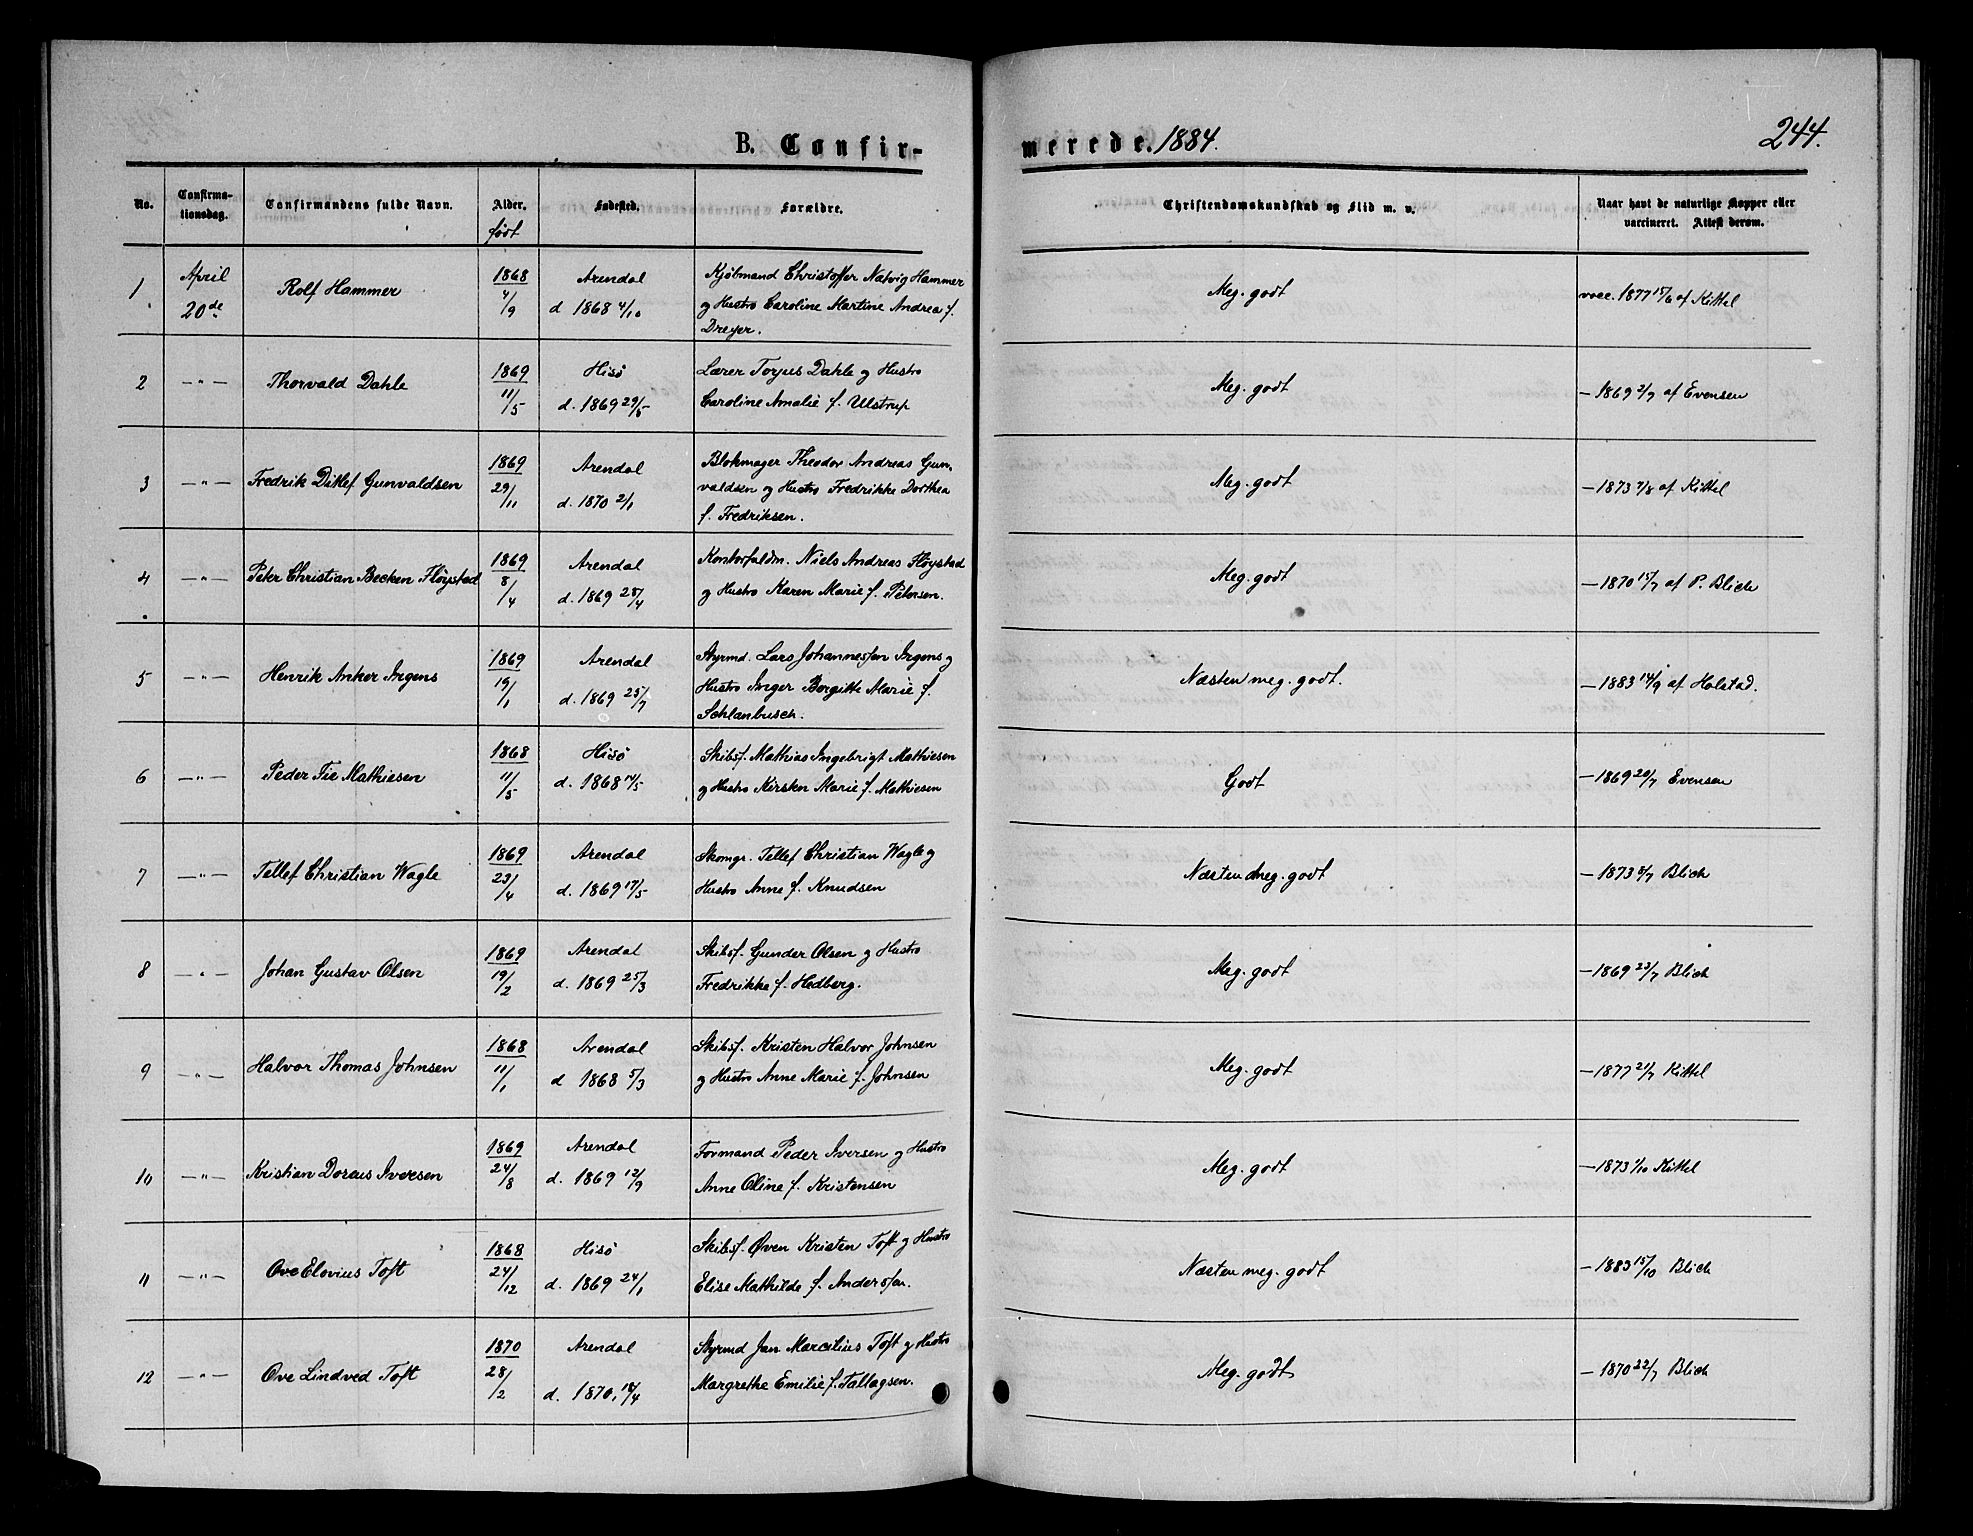 B. Confir-
merede. 1884.
244.
No.
Confirma-
tionsdag.
Confirmandens fulde Navn.
Alder.
født
Fødested.
Forældre.
Christendomskundskab og Flid m. v.
Naar havt de naturlige Kopper eller
vaccineret. Attest derom.
1
April
20de
Rolf Hammer
1868
4/9
Arendal
d 1868 4/10
Kjøbmand Christoffer Natvig Hammer
og Hustro Caroline Martine Andrea f.
Dreyer.
Meg. godt
vacc. 1877 15/6 af Kittel
2
—"—
Thorvald Dahle
1869
11/5
Hisö
d. 1869 29/5
Lærer Torjus Dahle og Hustro
Caroline Amalie f. Ulstrup
Meg. godt
— 1869 2/7 af Evensen
3
—"—
Fredrik Ditlef Gunvaldsen
1869
29/11
Arendal
d. 1870 2/1
Blokmager Theodor Andreas Gun-
valdsen og Hustro Fredrikke Dorthea
f. Fredriksen.
Meg. godt
— 1873 7/8 af Kittel
4
—"—
Peter Christian Becken Fløystad
1869
8/4
Arendal
d. 1869 28/4
Kontorfuldm. Niels Andreas Fløystad
og Hustro Karen Marie f. Petersen.
Meg. godt
— 1870 15/7 af P. Blich
5
—"—
Henrik Anker Irgens
1869
19/1
Arendal
d. 1869 25/7
Styrmd. Lars Johannessen Irgens og
Hustro Inger Borgitte Marie f.
Schlanbusch.
Næsten meg. godt.
— 1883 14/9 af Holstad.
6
—"—
Peder Fie Mathiesen
1868
11/5
Hisö
d. 1868 14/5
Skibsf. Mathias Ingebrigt Mathiesen
og Hustro Kirsten Marie f. Mathiesen
Godt
— 1869 20/7 Evensen
7
—"—
Tellef Christian Wagle
1869
23/4
Arendal
d. 1869 17/5
Skomgr. Tellef Christian Wagle og
Hustro Anne f. Knudsen
Næsten meg. godt
— 1873 8/7 Blich
8
—"—
Johan Gustav Olsen
1869
19/2
Arendal
d. 1869 25/3
Skibsf. Gunder Olsen og Hustro
Fredrikke f. Hedberg.
Meg. godt
— 1869 23/7 Blich
9
—"—
Halvor Thomas Johnsen
1868
11/1
Arendal
d 1868 5/3
Skibsf. Kristen Halvor Johnsen
og Hustro Anne Marie f. Johnsen
Meg. godt
— 1877 21/7 Kittel
10
—"—
Kristian Doreus Iversen
1869
24/8
Arendal
d. 1869 12/9
Formand Peder Iversen og Hustro
Anne Oline f. Kristensen
Meg. godt
— 1873 1/10 Kittel
11
—"—
Ove Elovius Toft
1868
24/12
Hisö
d. 1869 24/1
Skibsf. Øven Kristen Toft og Hustro
Elise Mathilde f. Anderssen.
Næsten meg. godt
— 1883 15/10 Blich
12
—"—
Ove Lindved Toft
1870
28/2
Arendal
d. 1870, 18/4
Styrmd Jan Marcilius Toft og Hustro
Margrethe Emilie f. Tallagsen.
Meg. godt
— 1870 22/7 Blich